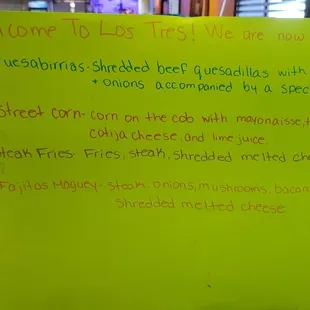 come To Los Tres! We are now
uesabirrias-shredded beef quesadillas with
+ onions accompanied by a spec
Street corn- corn on the cob with mayonaisse, t
cotija cheese, and lime juice.
teak Fries- Fries, steak, shredded melted che
Fajitas Maguey- steak, onions, mushrooms, bacon
shredded melted cheese